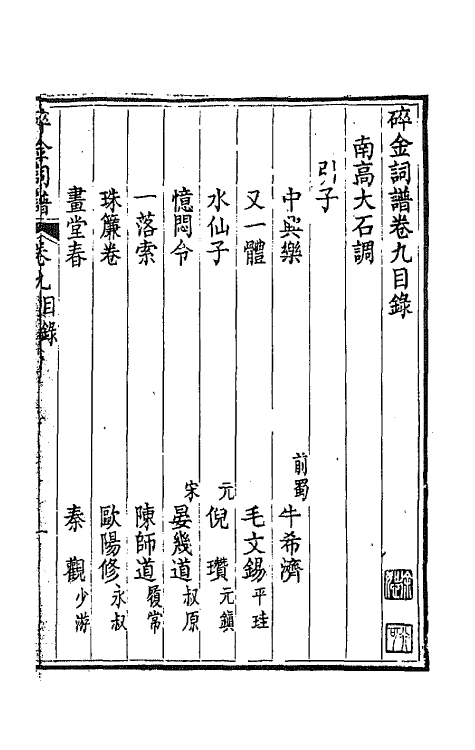 碎金詞譜卷九目錄
南高大石調
引子
中興樂 前蜀 牛希濟
又一體 毛文錫平珪
水仙子 元 倪瓚元鎮
憶悶令 宋 晏幾道叔原
一落索 陳師道履常
珠簾卷 歐陽修永叔
畫堂春 秦觀少游
碎金詞譜 卷九目錄 一